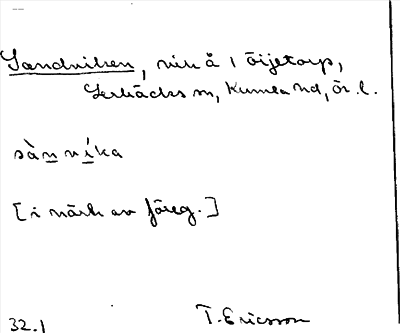 Sandviken, vik å i Öijetorp,
Lerbäcks sn, Kumla hd, Ör. l.
sànnvíka
[i närh. av föreg.]
T. Ericsson
32.1